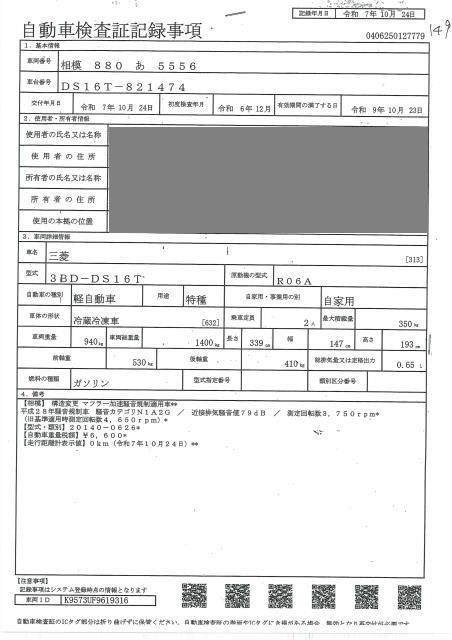 記録年月日 令和 7年10月 24日
自動車検査証記録事項
0406250127779
149
1. 基本情報
車両番号 相模 880 あ 5556
車台番号 DS16T-821474
交付年月日 令和 7年10月 24日 初度検査年月 令和 6年12月 有効期間の満了する日 令和 9年10月 23日
2. 使用者・所有者情報
使用者の氏名又は名称
使用者の住所
所有者の氏名又は名称
所有者の住所
使用の本拠の位置
3. 車両詳細情報
車名 三菱 [313]
型式 3BD-DS16T 原動機の型式 R06A
自動車の種別 軽自動車 用途 特種 自家用・事業用の別 自家用
車体の形状 冷蔵冷凍車 [632] 乗車定員 2人 最大積載量 350kg
車両重量 940kg 車両総重量 1400kg 長さ 339cm 幅 147cm 高さ 193cm
前軸重 530kg 後軸重 410kg 総排気量又は定格出力 0.65L
燃料の種類 ガソリン 型式指定番号 類別区分番号
4. 備考
【相模】 構造変更 マフラー加速騒音規制適用車**
平成28年騒音規制車 騒音カテゴリN1A2G / 近接排気騒音値79dB / 測定回転数3,750rpm*
(旧基準適用時測定回転数4,650rpm)*
【型式・類別】20140-0626*
【自動車重量税額】¥6,600*
【走行距離計表示値】0km(令和7年10月24日)**
【注意事項】
記録事項はシステム登録時点の情報となります
車両ID K9573UF9619316
自動車検査証のICタグ部分は折り曲げずに保管ください。